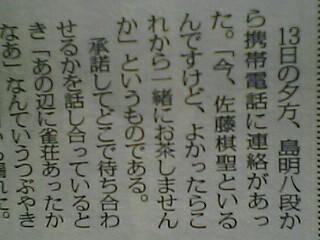 13日の夕方、島明八段か
ら携帯電話に連絡があっ
た。「今、佐藤棋聖といる
んですけど、よかったらこ
れから一緒にお茶しません
か」というものである。
承諾してどこで待ち合わ
せるかを話し合っていると
き「あの辺に雀荘あったか
なあ」なんていうつぶやき